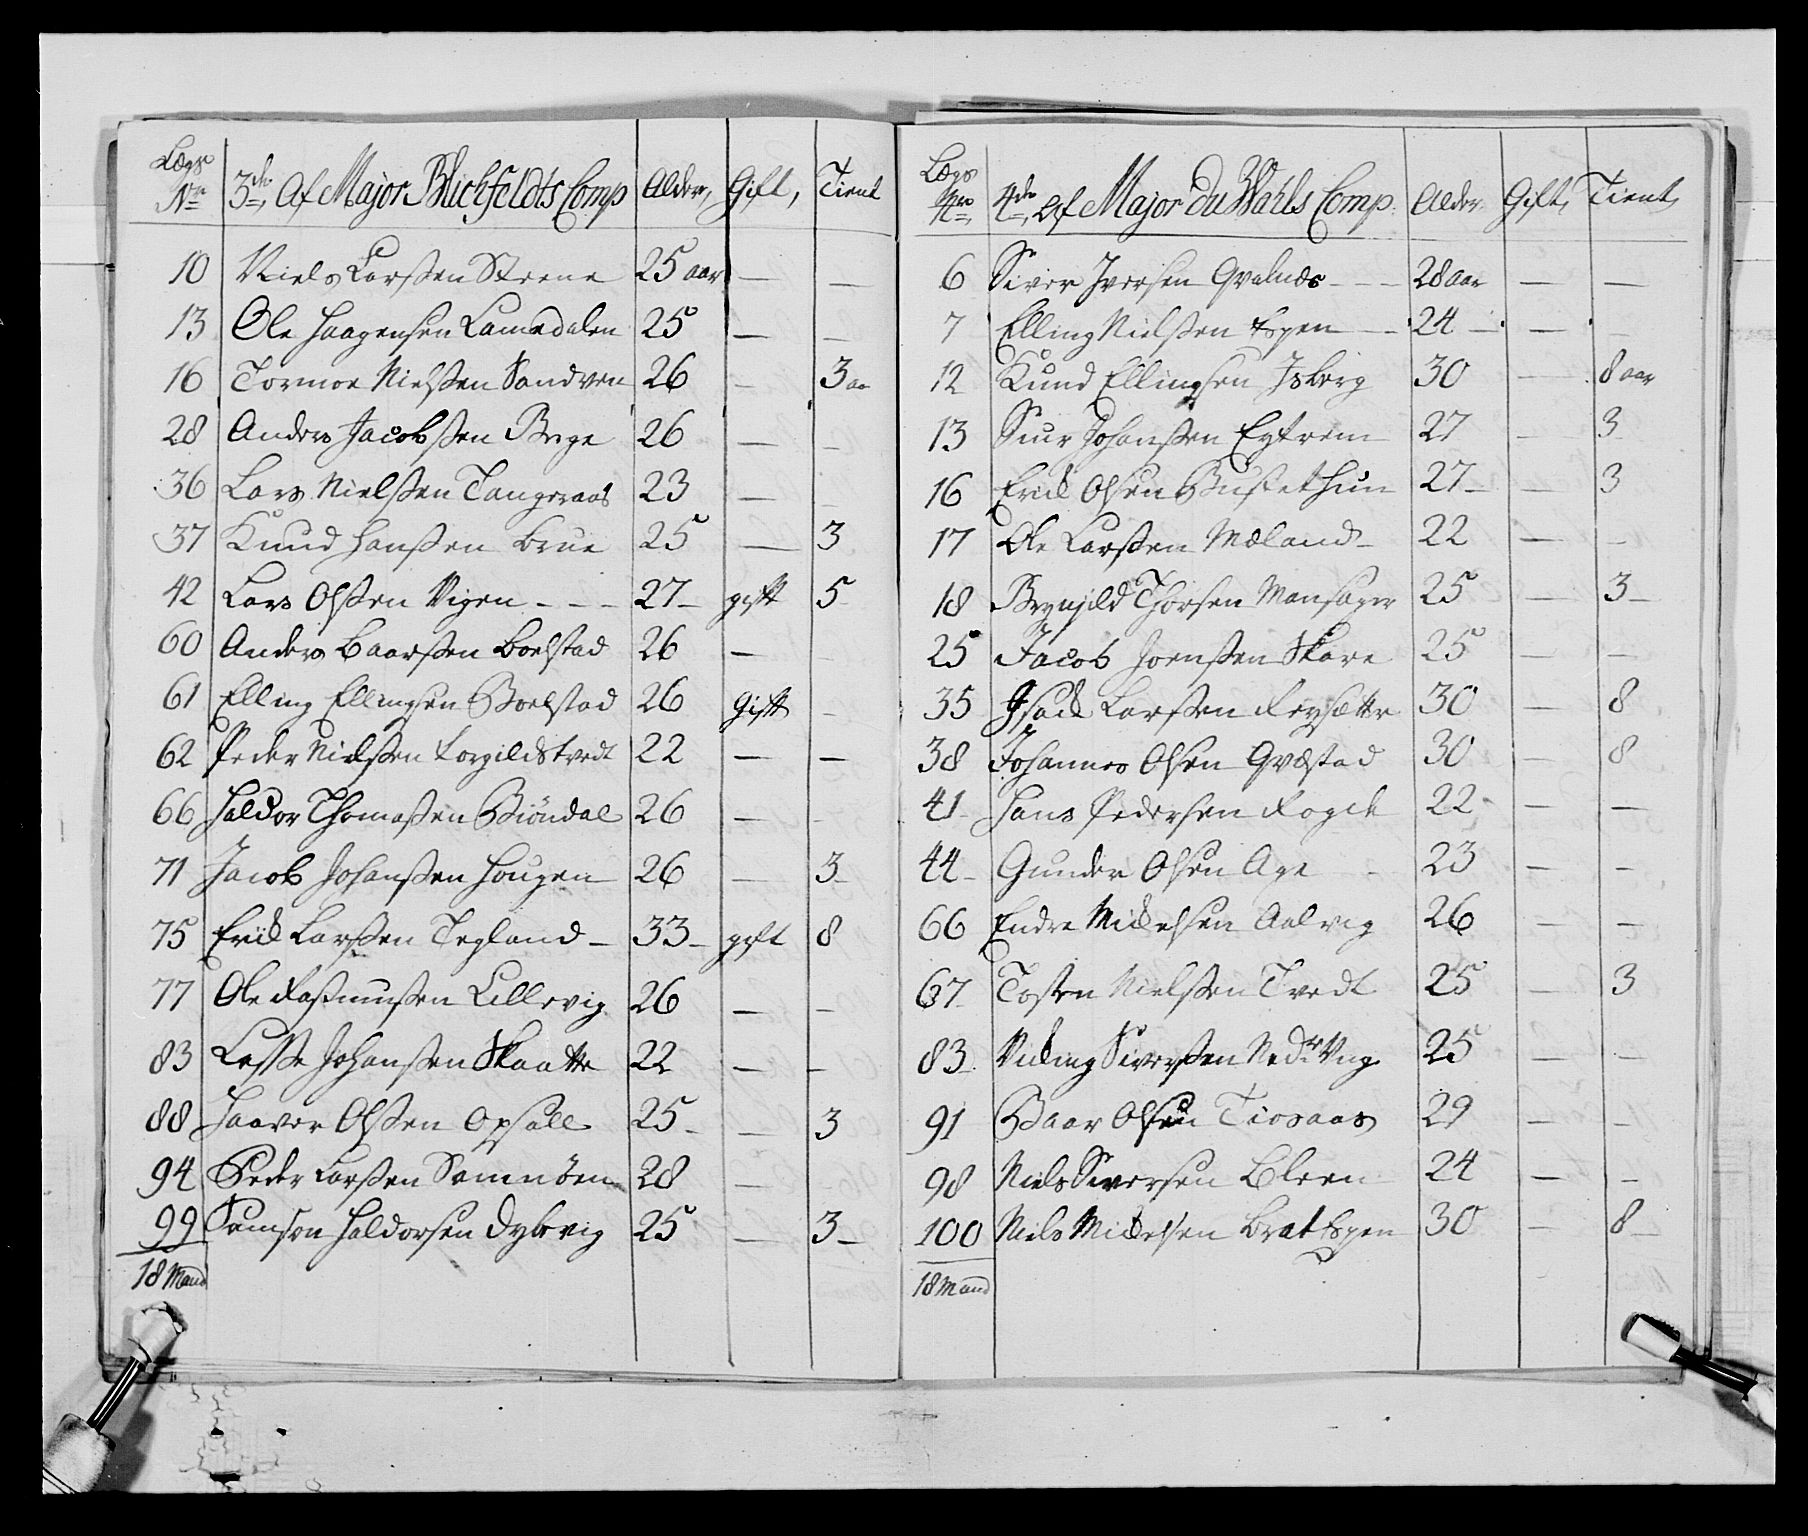 Lægs No 3de, Af Major Blichfeldts Comp Alder, Gift, Tient
10 Niels Larssen Steene 25 aar — —
13 Ole Haagensen Lamedalen 25 — —
16 Tormoe Nielssen Sandven 26 — 3 aar
28 Anders Jacobssen Berge 26 — —
36 Lars Nielssen Tangeraas 23 — —
37 Knud Hanssen Brue 25 — 3
42 Lars Olssen Vigen - - - 27 gift 5
60 Anders Baarssen Bolstad 26 — —
61 Elling Ellingsen Bolstad 26 Gift —
62 Peder Nielssen Torgildstvedt 22 — —
66 Haldor Thomassen Biöndal 26 — —
71 Jacob Johanssen Hougen 26 — 3
75 Erick Larssen Tegland 33 gift 8
77 Ole Rasmussen Lillevig 26 — —
83 Lasse Johanssen Skaatte 22 — —
88 Haaver Olssen Opsall 25 — 3
94 Peder Larssen Samnöen 28 —
99 Samson Haldorsen Dybvig 25 — 3
18 Mand
Lægs Nro 4de, Af Major du Wahls Comp Alder Gift, Tient,
6 Siver Iversen Qvalnæs - - - 28 aar — —
7 Elling Nielssen Espen 24 — —
12 Knud Ellingsen Isberg 30 — 8 aar
13 Siur Johanssen Eytrem 27 — 3
16 Erick Olsen Bustethun 27 — 3
17 Ole Larssen Mæland 22 — —
18 Brynjild Thorsen Mansager 25 — 3
25 Jacob Joenssen Skare 25 — —
35 Isack Larssen Reysætter 30 — 8
38 Johannes Olsen Qvæstad 30 — 8
41 Hans Pedersen Rogde 22 — —
44 Gunder Olsen Age 23 — —
66 Endre Mickelsen Aalvig 26 — —
67 Tosten Nielssen Tvedt 25 — 3
83 Viking Siverssen Nedr Vig 25 — —
91 Baar Olsen Tiosaas 29 — —
98 Niels Siversen Bleen 24 — —
100 Niels Mickelsen BratEspen 30 — 8
18 Mand